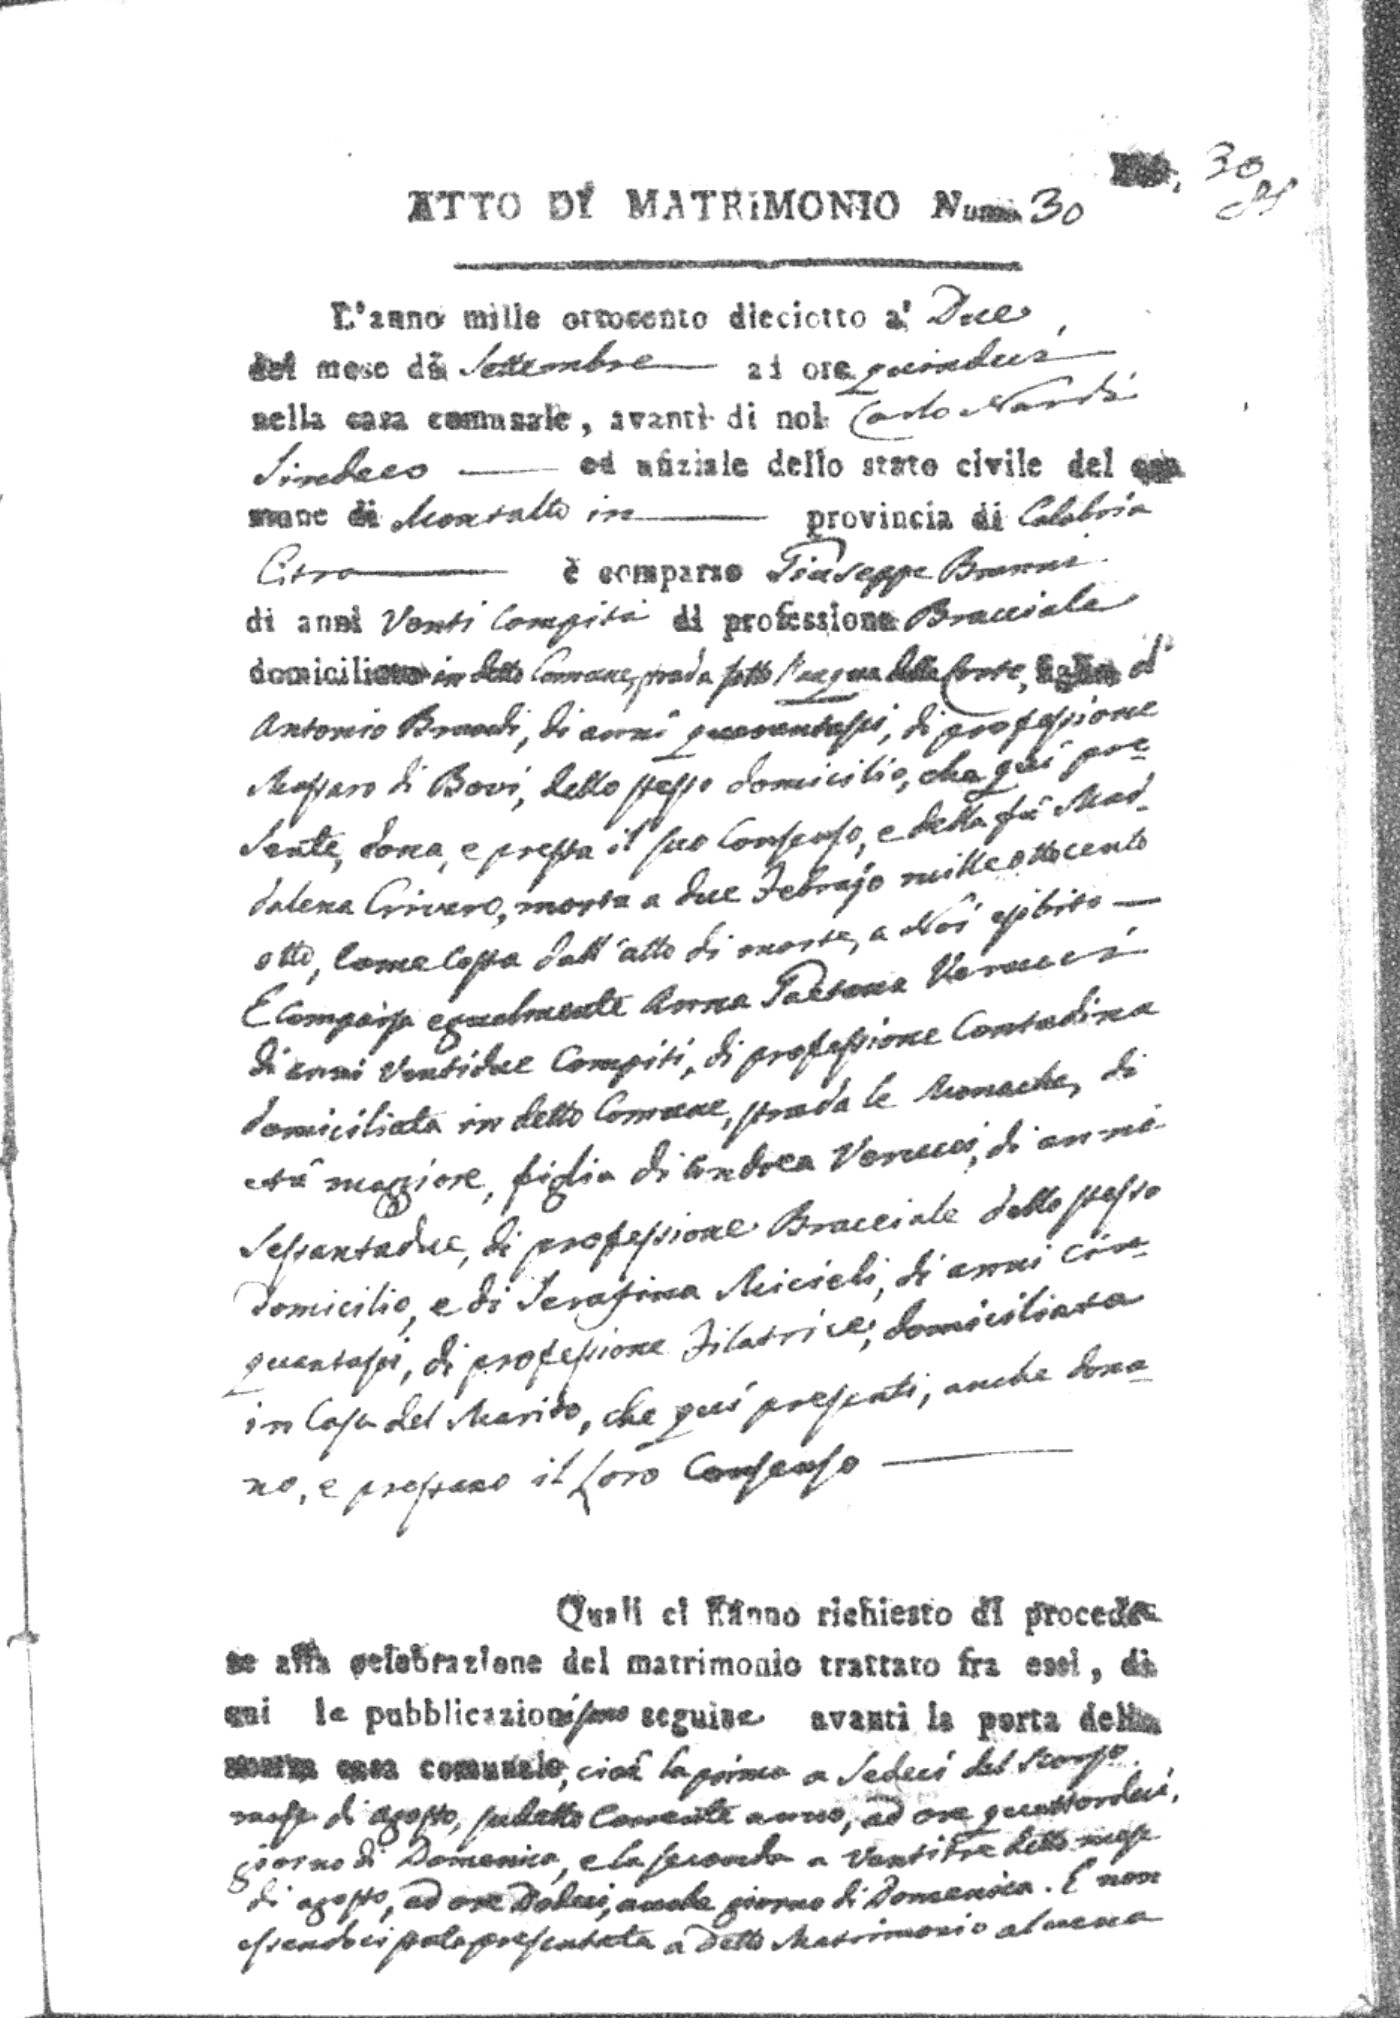 30
ATTO DI MATRIMONIO Num. 30
L'anno mille ottocento dieciotto a' Due,
del mese di Settembre ad ore quindeci
nella casa comunale, avanti di noi Carlo Nardi
Sindaco ed ufiziale dello stato civile del co-
mune di Montalto in provincia di Calabria
Citra è comparso Giuseppe
di anni Venti Compiti di professione Bracciale
domiciliato in detto Comune, strada sotto l'acqua della Corte, figlio d'
Antonio, di anni quarantasei, di professione
Massaro di Bovi, dello stesso domicilio, che quì pre-
sente, dona, e presta il suo Consenso, e della fù Mad-
dalena Crivaro, morta a due Febrajo mille ottocento
otto, Come Costa dall'atto di morte, a Noi esibito
È Comparsa egualmente Anna Gaetana Venucci
di anni Ventidue Compiti, di professione Contadina
domiciliata in detto Comune, strada le Monache, di
età maggiore, figlia di Andrea Venucci, di anni
Sessantadue, di professione Bracciale dello stesso
Domicilio, e di Serafina Micieli, di anni cin-
quantasei, di professione Filatrice, domiciliata
in Casa del Marito, che quì presenti, anche dona-
no, e prestano il Loro Consenso
Quali ci hanno richiesto di procede-
re alla celebrazione del matrimonio trattato fra essi, di
cui le pubblicazioni sono seguite avanti la porta della
casa comunale, cioè la prima a Sedeci del Scorso
mese di Agosto, sudetto Corrente anno, ad ore quattordeci,
giorno di Domenica, e la seconda a Ventitre detto mese
di Agosto, ad ore Dodeci, anche giorno di Domenica. E non
essendoci stata presentata a detto Matrimonio alcuna